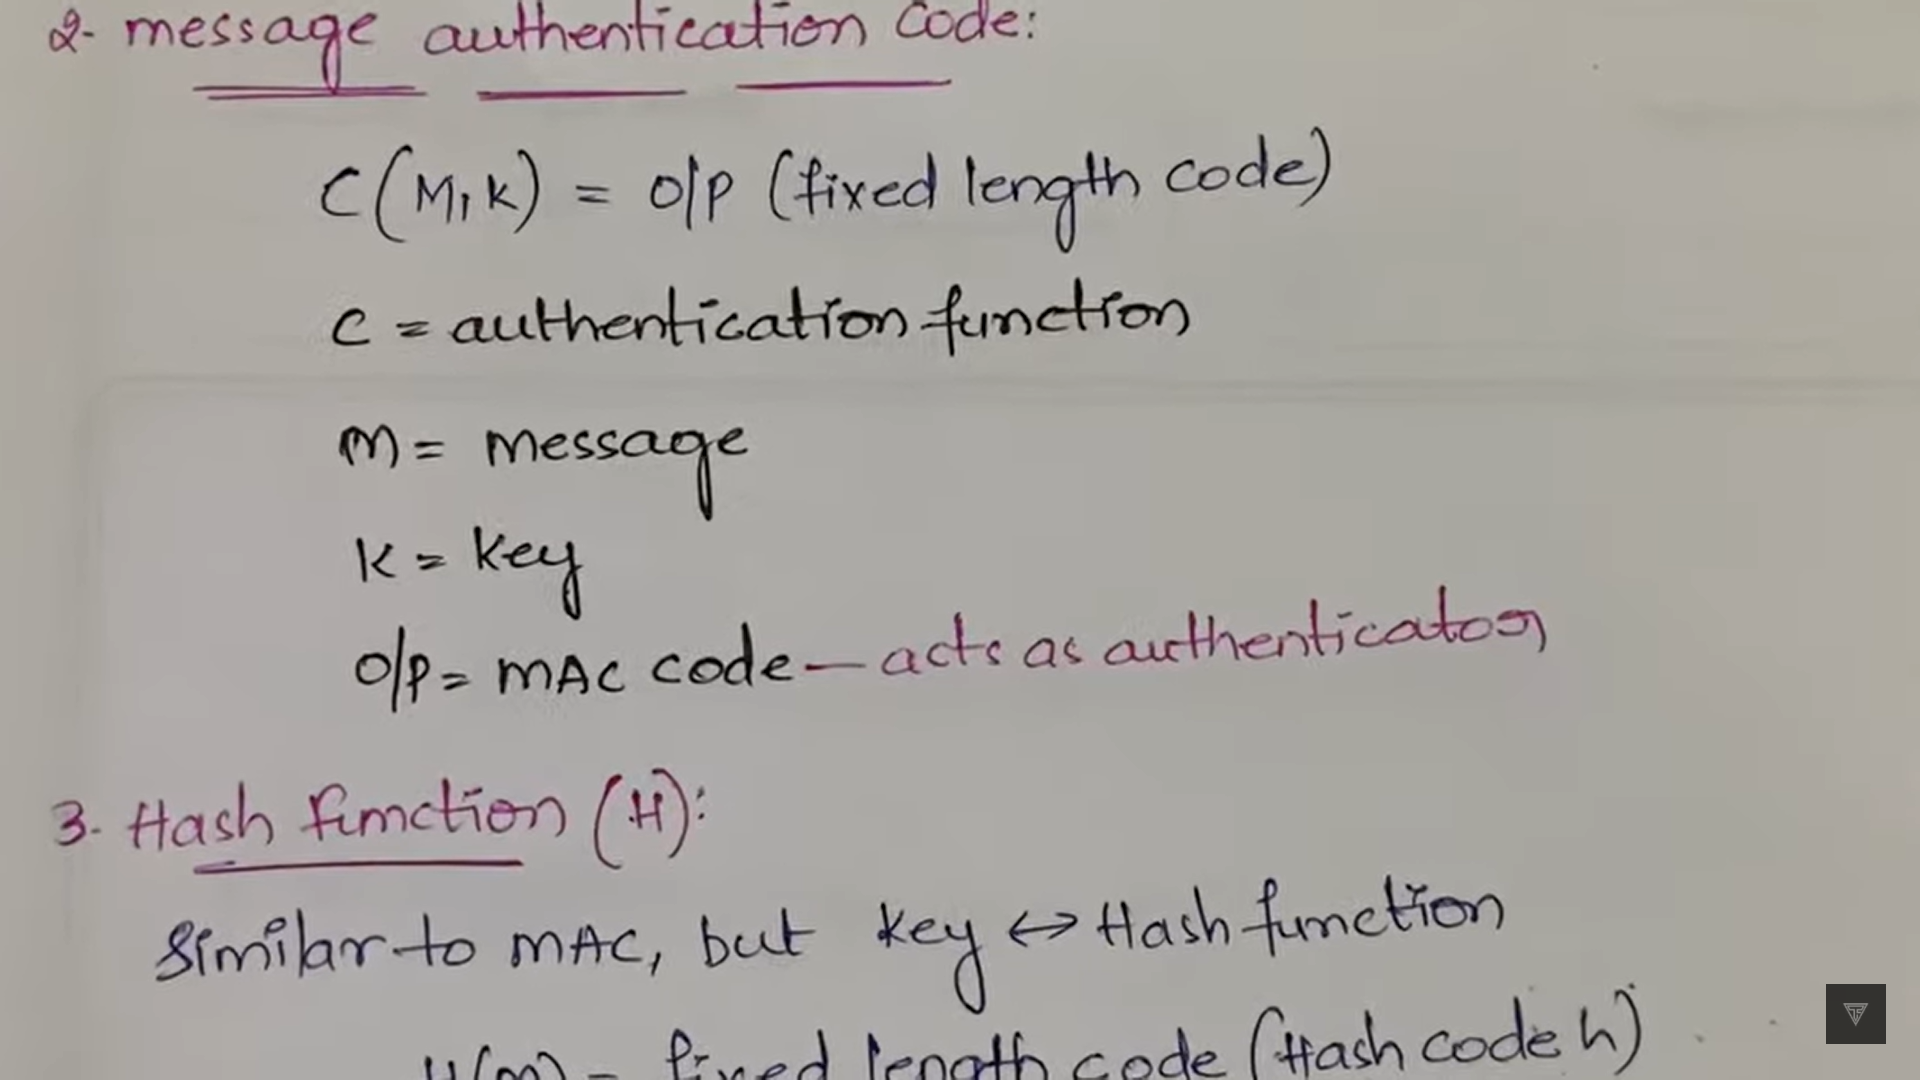 2- message authentication code:
C(M,K) = O/P (fixed length code)
C = authentication function
M = message
K = key
O/P = MAC code — acts as authenticator
3- Hash function (H):
Similar to MAC, but key ↔ Hash function
H(M) = fixed length code (Hash code h)